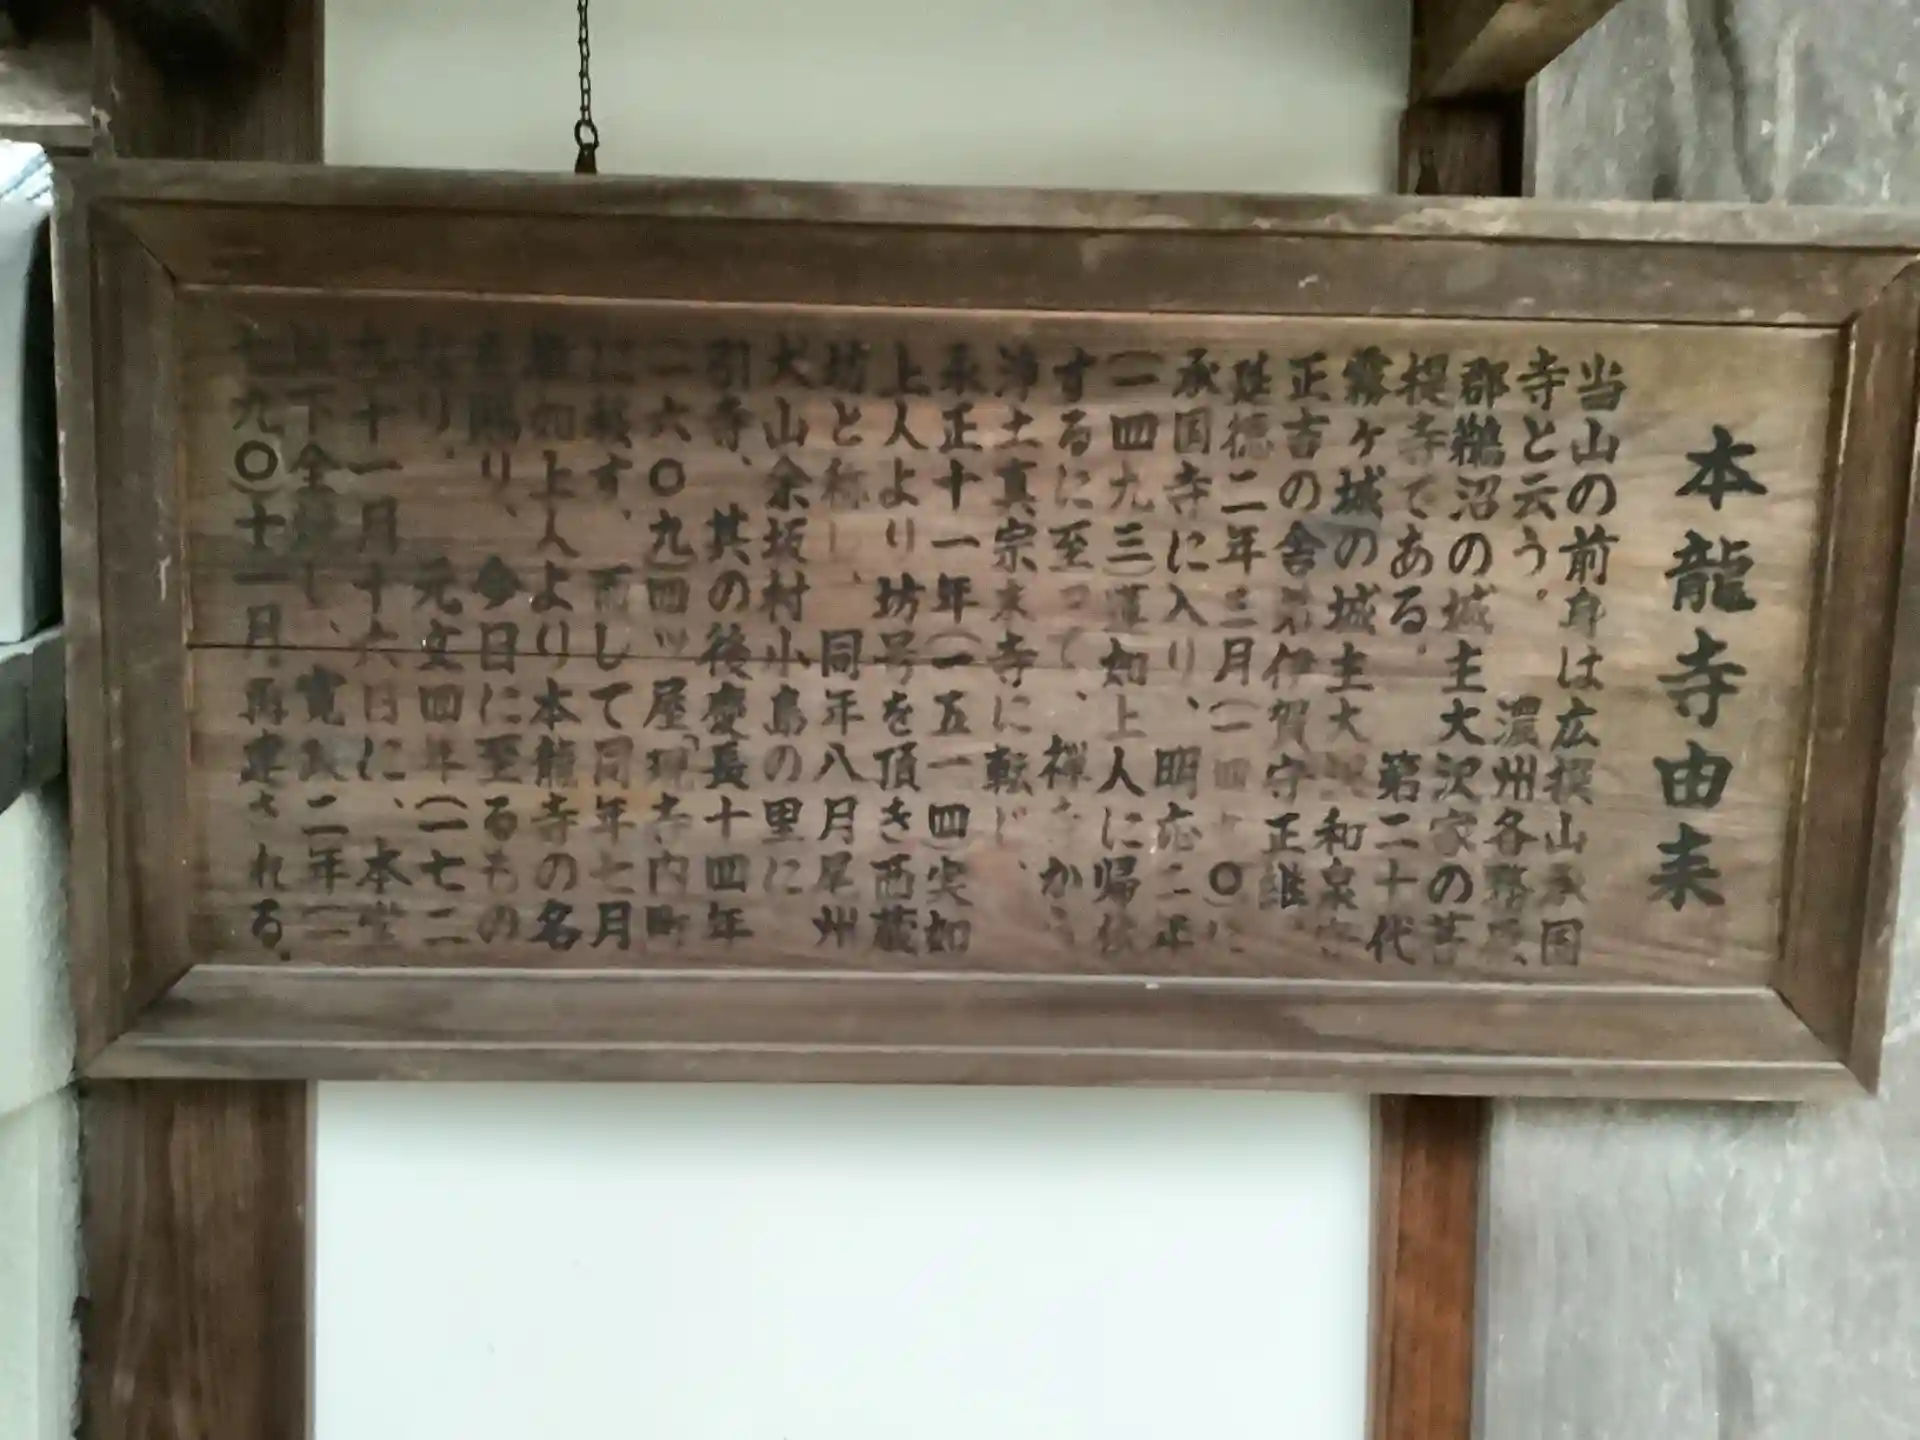 本龍寺由来
当山の前身は広撰山承国
寺と云う。濃州各務原、
郡鵜沼の城主大沢家の菩
提寺である。第二十代
霧ヶ城の城主大沢和泉守
正吉の舎弟伊賀守正継、
延徳二年三月(一四九〇)に
承国寺に入り、明応二年
(一四九三)蓮如上人に帰依
するに至って、禅寺から
浄土真宗末寺に転じ、
永正十一年(一五一四)実如
上人より坊号を頂き西蔵
坊と称し、同年八月尾州
犬山余坂村小島の里に
引寺、其の後慶長十四年
(一六〇九)四ッ屋「現寺内町
に移す、而して同年七月
如上人より本龍寺の名
を賜り、今日に至るもの
なり。元文四年(一七三
九)十一月十六日に、本堂
以下全焼し、寛政二年(一
七九〇)十一月再建される。